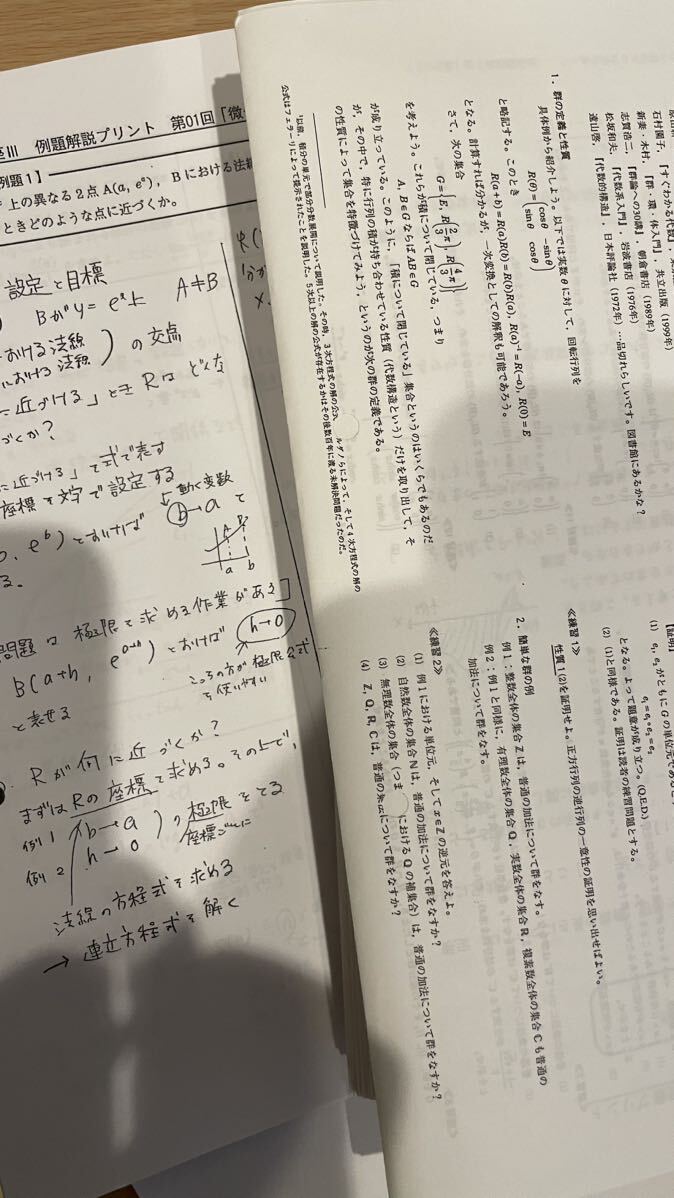 座III 例題解説プリント 第01回「微
例題1】
上の異なる2点A(a, eᵃ), Bにおける法線
ときどのような点に近づくか。
設定と目標
Bが y = eˣ上 A≠B
おける法線
における法線 ) の交点
に近づける」とき Rは どんな
づくか?
に近づける」を式で表す
座標を文字で設定する
動く変数
, eᵇ) とおけば b→a で
A B
a b
る。
問題は 極限を求める作業がある]
B(a+h, eᵃ⁺ʰ) とおけば h→0
と表せる
こっちの方が 極限公式
を使いやすい
Rが何に近づくか?
まずは Rの座標を求める。その上で、
例1 b→a
例2 h→0 ) の極限をとる
座標ごとに
法線の方程式を求める
→ 連立方程式を解く
石村園子,『すぐわかる代数』,
新妻・木村,『群・環・体入門』, 共立出版 (1999年)
志賀浩二,『群論への30講』, 朝倉書店 (1989年)
松坂和夫,『代数系入門』, 岩波書店 (1976年)
遠山啓,『代数的構造』, 日本評論社 (1972年) …品切れらしいです。図書館にあるかな?
1. 群の定義と性質
具体例から紹介しよう。以下では実数θに対して, 回転行列を
R(θ) = (cosθ −sinθ
sinθ cosθ)
と略記する。このとき
R(a+b) = R(a)R(b) = R(b)R(a), R(a)⁻¹ = R(−a), R(0) = E
となる。計算すれば分かるが, 一次変換としての解釈も可能であろう。
さて, 次の集合
G = {E, R(2/3 π), R(4/3 π)}
を考えよう。これらが積について閉じている, つまり
A, B∈G ならば AB∈G
が成り立っている。このように,「積について閉じている」集合というのはいくらでもあるのだ
が, その中で, 特に行列の積が持ち合わせている性質 (代数構造という) だけを取り出して, そ
の性質によって集合を特徴づけてみよう, というのが次の群の定義である。
¹以前, 積分の単元で部分分数展開について説明した。その時, 3次方程式の解の公式 ルダノらによって, そして4次方程式の解の
公式はフェラーリによって提示されたことを説明した。5次以上の解の公式が存在するかはその後数百年に渡る未解決問題だったのだ。
【証明】
(1) e₁, e₂ がともに G の単位元であ
e₁ = e₁∘e₂ = e₂
となる。よって題意が成り立つ。(Q.E.D.)
(2) (1)と同様である。証明は読者の練習問題とする。
≪練習1≫
性質1(2)を証明せよ。正方行列の逆行列の一意性の証明を思い出せばよい。
2. 簡単な群の例
例1:整数全体の集合Zは, 普通の加法について群をなす。
例2:例1と同様に, 有理数全体の集合Q, 実数全体の集合R, 複素数全体の集合Cも普通の
加法について群をなす。
≪練習2≫
(1) 例1における単位元, そして x∈Z の逆元を答えよ。
(2) 自然数全体の集合Nは, 普通の加法について群をなすか?
(3) 無理数全体の集合 (つま におけるQの補集合) は, 普通の加法について群をなすか?
(4) Z, Q, R, Cは, 普通の乗法について群をなすか?